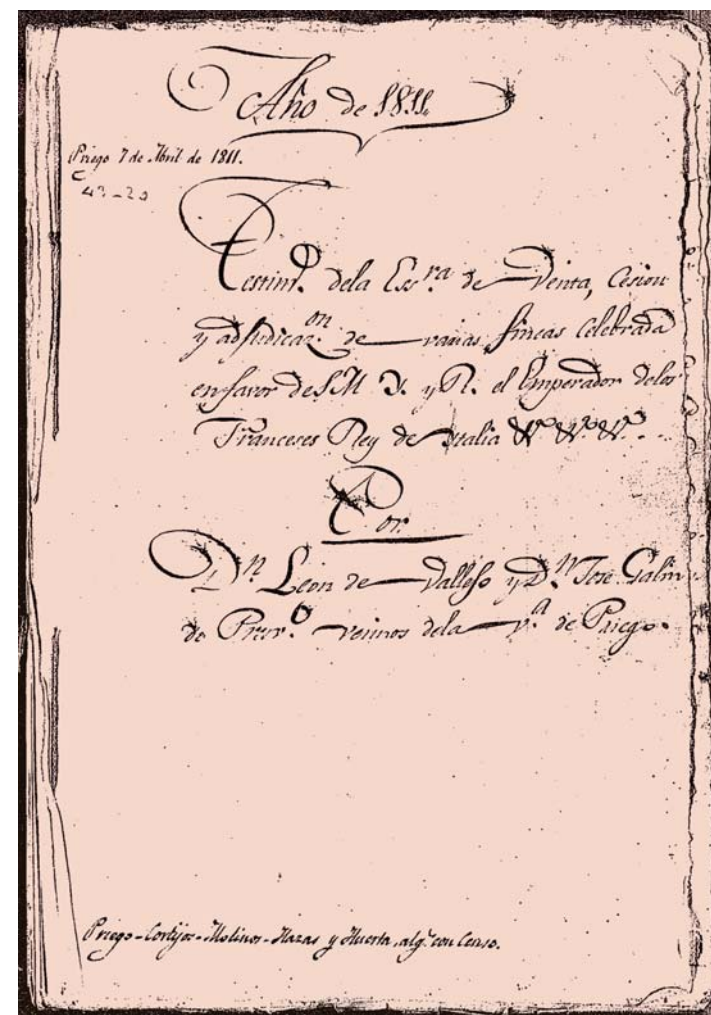 Año de 1811.
Priego 7 de Abril de 1811.
43-20
Testim.º dela Esc.ra de Venta, Cesion
y adjudicaz.on de varias fincas Celebrada
en favor de S M Y. y R. el Emperador delos
Franceses Rey de Italia
Por
D.n Leon de Vallejo y D.n Jose Galin
do Presv.º vecinos dela v.a de Priego.
Priego-Cortijos-Molinos-Hazas y Huerta, alg.s con Censo.